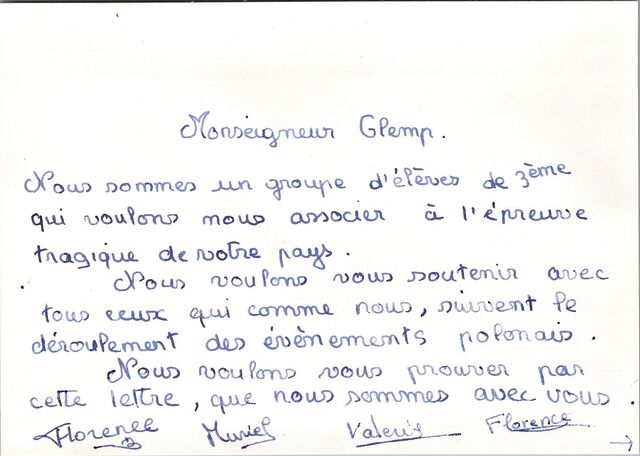 Monseigneur Glemp.
Nous sommes un groupe d'élèves de 3ème
qui voulons nous associer à l'épreuve
tragique de votre pays.
Nous voulons vous soutenir avec
tous ceux qui comme nous, suivent le
déroulement des évènements polonais.
Nous voulons vous prouver par
cette lettre, que nous sommes avec vous.
Florence Muriel Valerie Florence →